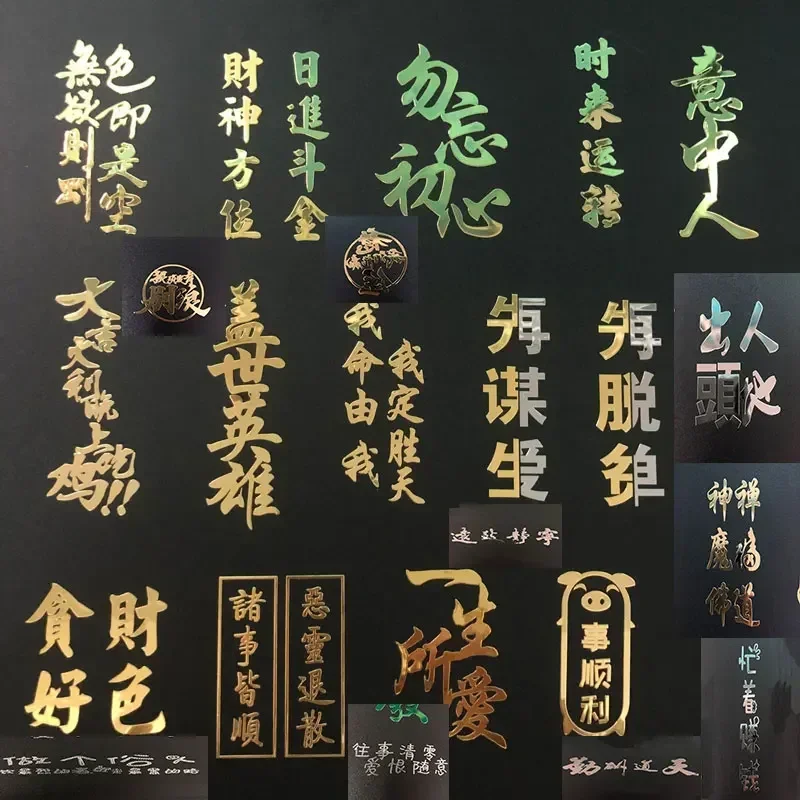 色即是空
無欲則剛
財神方位
日進斗金
勿忘初心
时来运转
意中人
大吉大利晚上吃鸡!!
盖世英雄
我命由我
我定胜天
先谋生
再谋爱
先脱贫
再脱单
出人
頭地
寧靜致遠
貪財
好色
諸事皆順
惡靈退散
一生
所愛
事顺利
往事清零
爱恨随意
天道酬勤
忙着赚钱
做个俗人